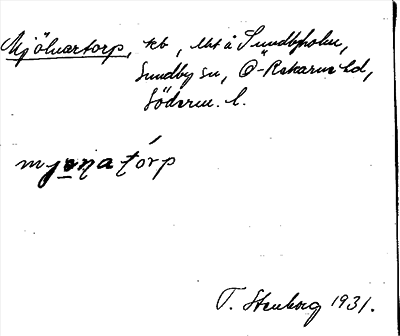 Mjölnartorp, tb, lht å Sundbyholm,
Sundby sn, Ö-Rekarne hd,
Söderm. l.
mjønatórp
T. Stenborg 1931.